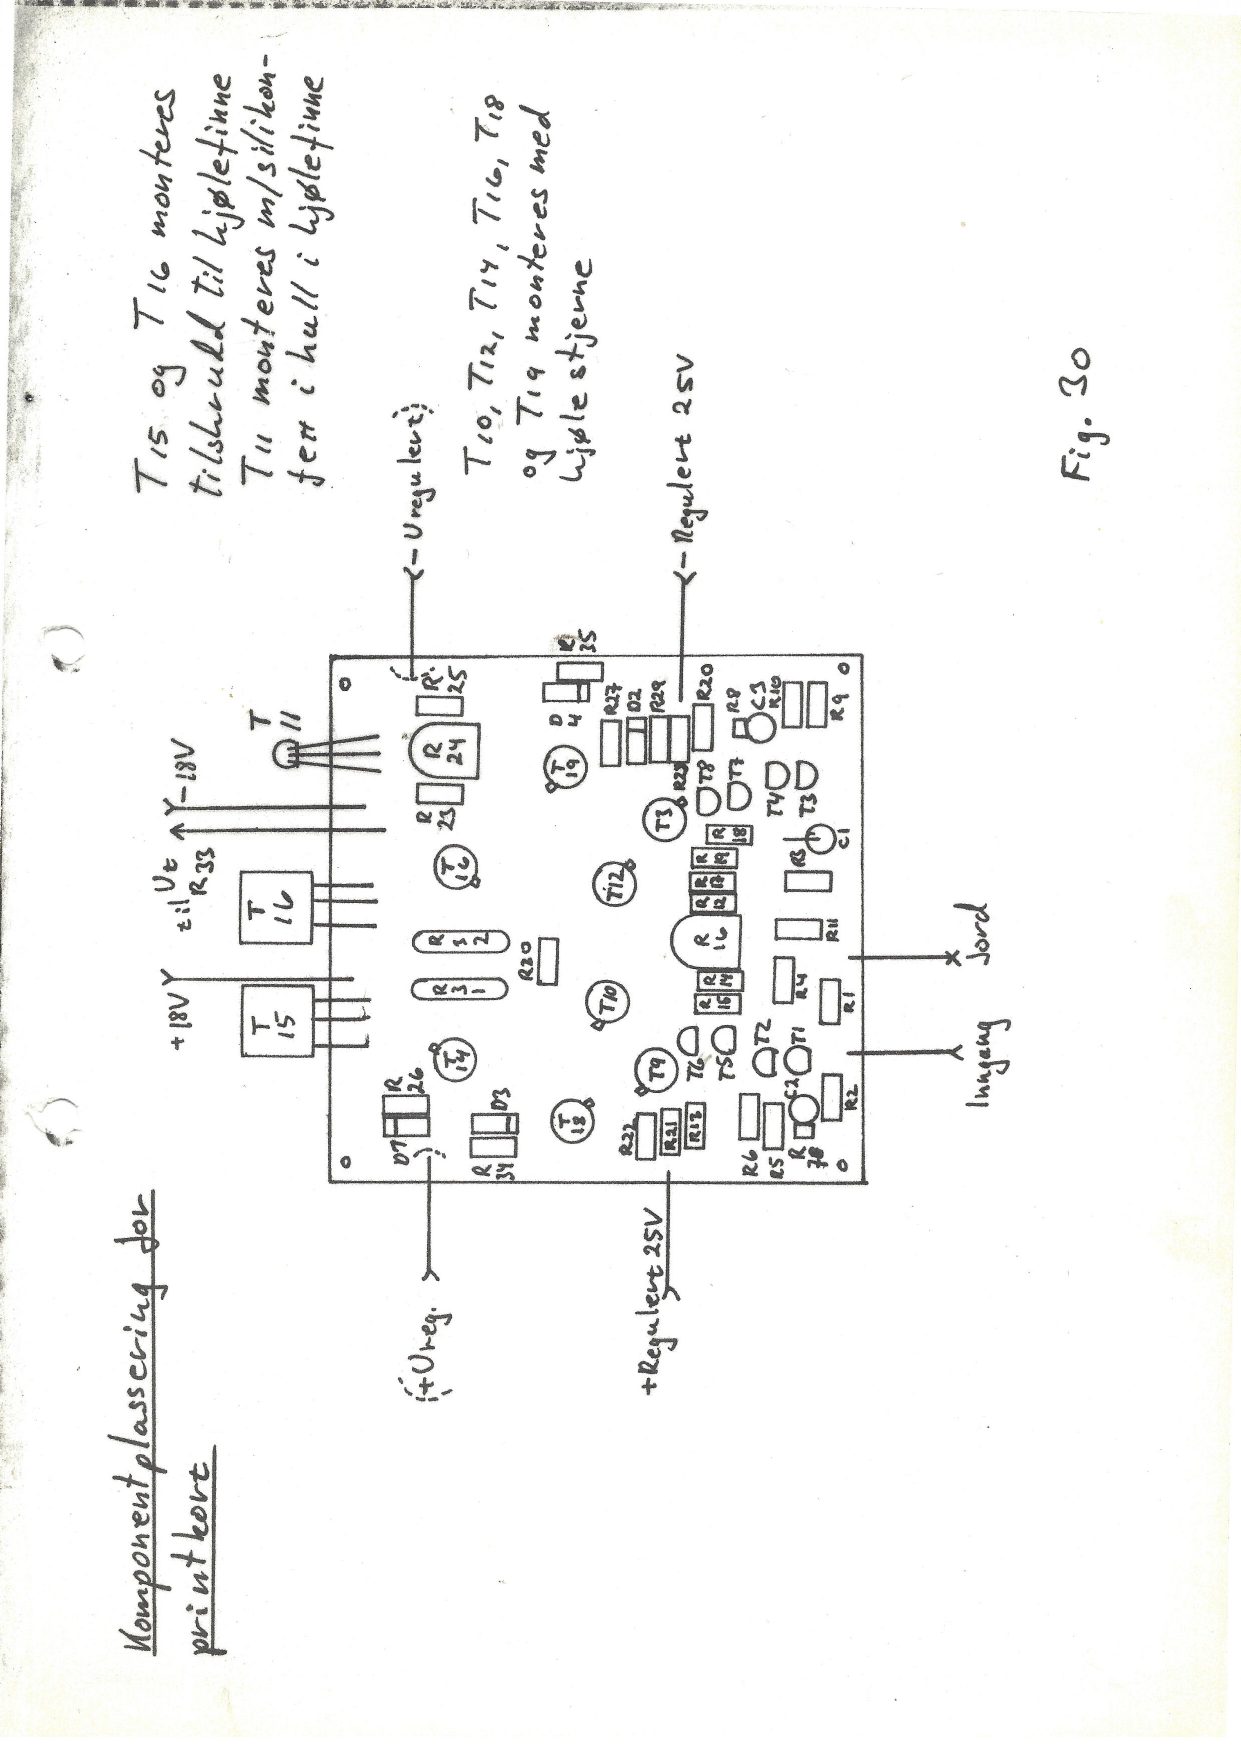 Komponentplassering for
printkort
T15 og T16 monteres
tilskrudd til kjølefinne
T11 monteres m/silikon-
fett i hull i kjølefinne
T10, T12, T14, T16, T18
og T19 monteres med
kjølestjerne
+18V
til Ut
R33
-18V
T 15
T 16
T 11
(+Ureg.
- Uregulert)
D1
R 26
R 31
R 32
R 23
R 24
R 25
T 14
T 16
R 34
D3
R30
D 4
R 35
T 18
T10
T12
T 19
R27
D2
R29
R28
R20
+Regulert 25V
- Regulert 25V
R22
R21
R13
T9
T3
T6
T5
R 15
R 14
R 16
R 12
R 17
R 19
R 18
T8
T7
R8
C3
R10
R9
R6
R5
T2
T1
R4
R11
R3
T4
T3
R 7B
C2
R2
R1
C1
Inngang
Jord
Fig. 30